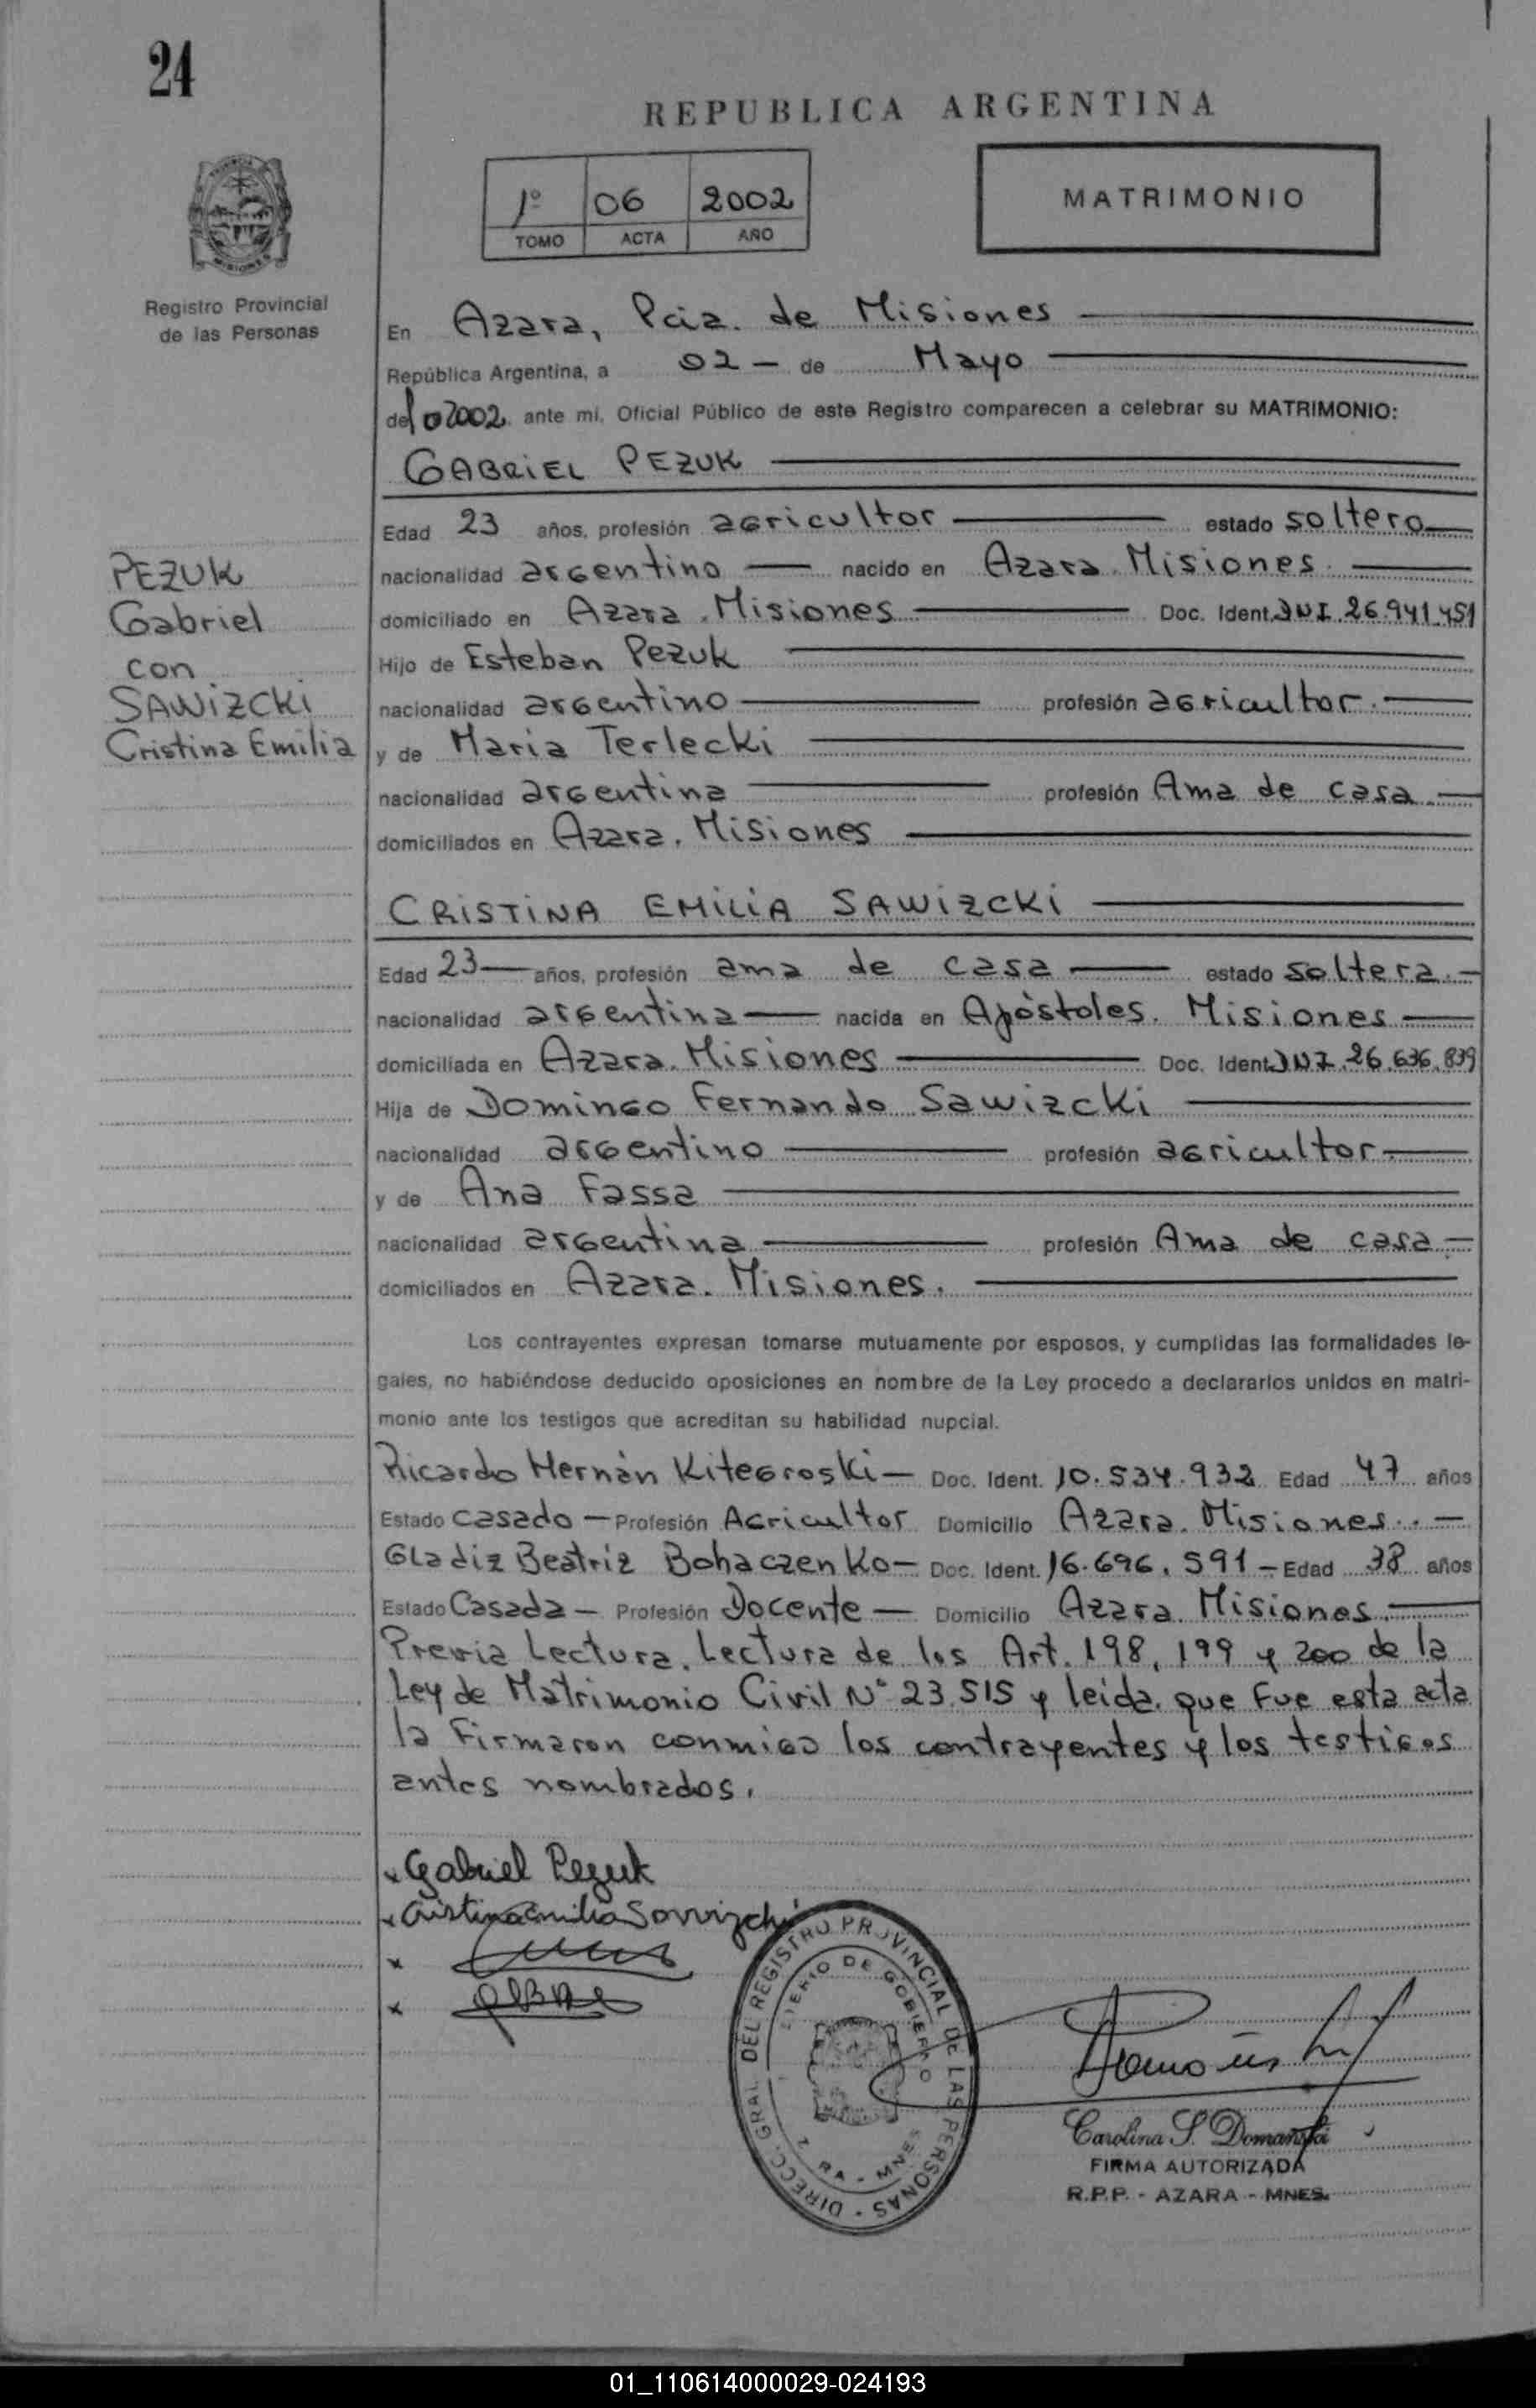 24
REPUBLICA ARGENTINA
1º 06 2002
TOMO ACTA AÑO
MATRIMONIO
Registro Provincial
de las Personas
En Azara, Pcia. de Misiones
República Argentina, a 02 - de Mayo
del 2002 ante mi, Oficial Público de este Registro comparecen a celebrar su MATRIMONIO:
GABRIEL PEZUK
Edad 23 años, profesión agricultor estado soltero
nacionalidad argentino nacido en Azara. Misiones.
domiciliado en Azara. Misiones Doc. Ident. DNI. 26.941.451
Hijo de Esteban Pezuk
nacionalidad argentino profesión agricultor.
y de Maria Terlecki
nacionalidad argentina profesión Ama de casa.
domiciliados en Azara. Misiones
PEZUK
Gabriel
con
SAWIZCKI
Cristina Emilia
CRISTINA EMILIA SAWIZCKI
Edad 23 años, profesión ama de casa estado soltera.
nacionalidad argentina nacida en Apóstoles. Misiones
domiciliada en Azara. Misiones Doc. Ident. DNI. 26.636.839
Hija de Domingo Fernando Sawizcki
nacionalidad argentino profesión agricultor.
y de Ana Fassa
nacionalidad argentina profesión Ama de casa.
domiciliados en Azara. Misiones.
Los contrayentes expresan tomarse mutuamente por esposos, y cumplidas las formalidades le-
gales, no habiéndose deducido oposiciones en nombre de la Ley procedo a declararlos unidos en matri-
monio ante los testigos que acreditan su habilidad nupcial.
Ricardo Hernàn Kitegroski - Doc. Ident. 10.534.932 Edad 47 años
Estado casado - Profesión Agricultor Domicilio Azara. Misiones. -
Gladiz Beatriz Bohaczenko - Doc. Ident. 16.696.591 - Edad 38 años
Estado Casada - Profesión Docente - Domicilio Azara. Misiones.
Previa Lectura. Lectura de los Art. 198, 199 y 200 de la
Ley de Matrimonio Civil Nº 23.515 y leida. que fue esta acta
la firmaron conmigo los contrayentes y los testigos
antes nombrados.
x Gabriel Pezuk
x Cristina Emilia Sawizcki
x
x
DIRECC. GRAL. DEL REGISTRO PROVINCIAL DE LAS PERSONAS
DE GOBIERNO
RA - MNES
Carolina S. Domanski
FIRMA AUTORIZADA
R.P.P. - AZARA - MNES.
01_110614000029-024193